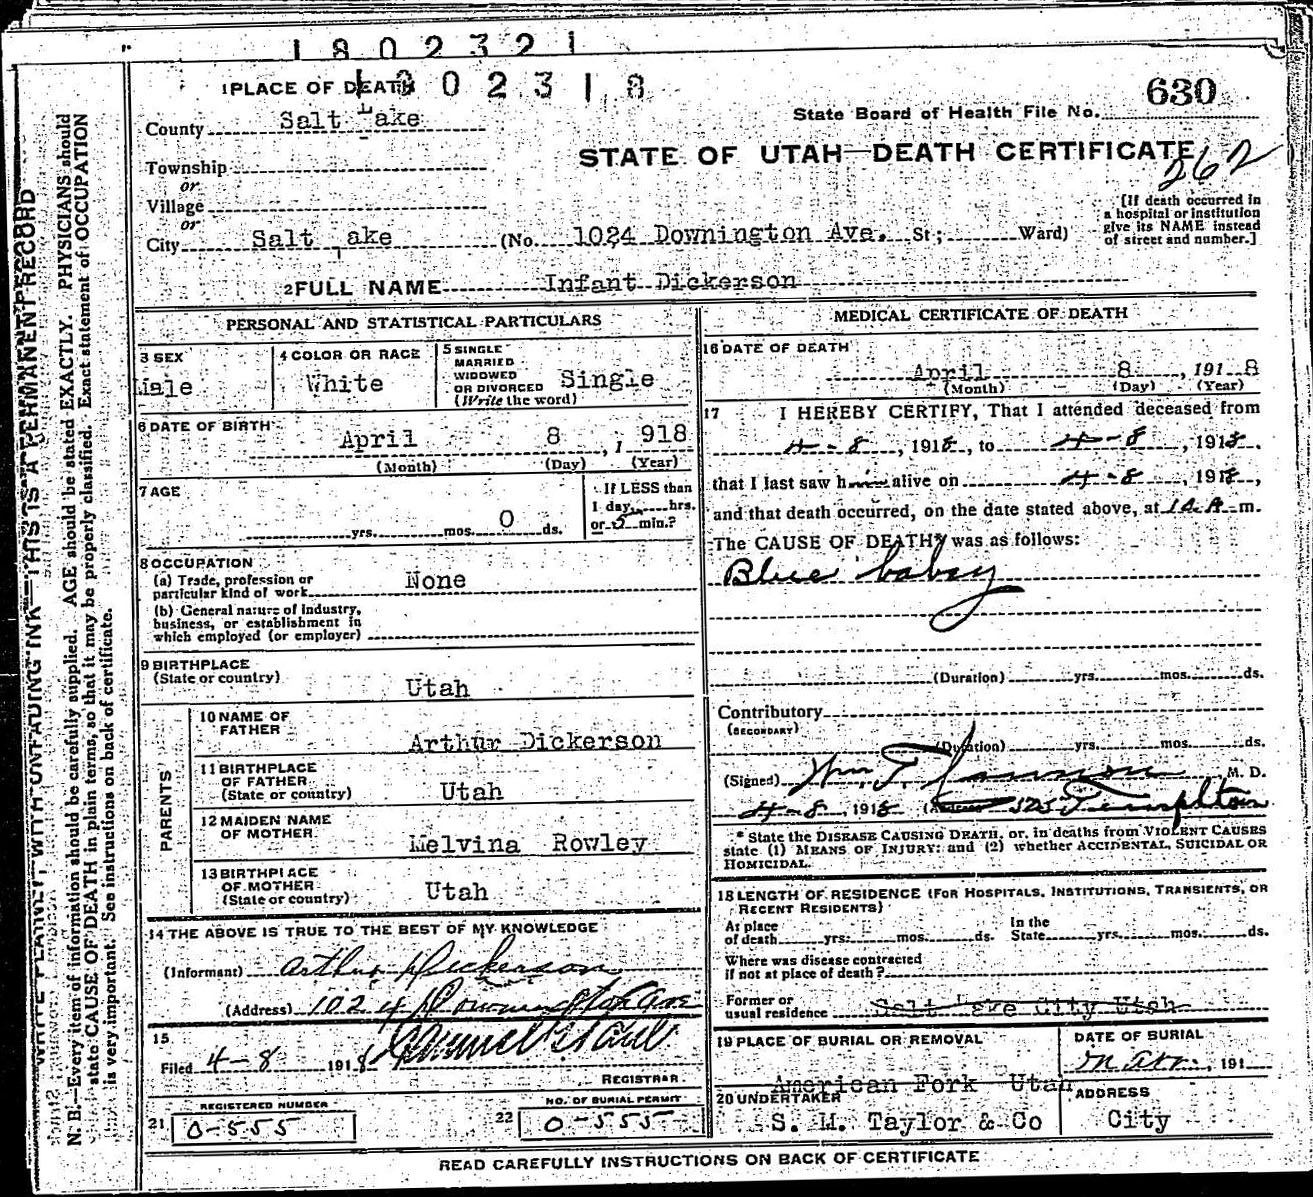 1802321
1802318
1 PLACE OF DEATH
630
State Board of Health File No.
County Salt Lake
STATE OF UTAH—DEATH CERTIFICATE
262
Township
or
Village
or
City Salt Lake (No. 1024 Downington Ave. St; Ward)
[If death occurred in a hospital or institution give its NAME instead of street and number.]
2 FULL NAME Infant Dickerson
PERSONAL AND STATISTICAL PARTICULARS
3 SEX
Male
4 COLOR OR RACE
White
5 SINGLE MARRIED WIDOWED OR DIVORCED (Write the word) Single
6 DATE OF BIRTH
April 8, 1918
(Month) (Day) (Year)
7 AGE
yrs. mos. 0 ds.
If LESS than 1 day, hrs. or 2 min.?
8 OCCUPATION
(a) Trade, profession or particular kind of work None
(b) General nature of industry, business, or establishment in which employed (or employer)
9 BIRTHPLACE
(State or country) Utah
PARENTS
10 NAME OF FATHER Arthur Dickerson
11 BIRTHPLACE OF FATHER (State or country) Utah
12 MAIDEN NAME OF MOTHER Melvina Rowley
13 BIRTHPLACE OF MOTHER (State or country) Utah
14 THE ABOVE IS TRUE TO THE BEST OF MY KNOWLEDGE
(Informant) Arthur Dickerson
(Address) 1024 Downington Ave
15
Filed 4-8 1918
REGISTRAR
REGISTERED NUMBER
21 0-555
NO. OF BURIAL PERMIT
22 0-555
MEDICAL CERTIFICATE OF DEATH
16 DATE OF DEATH
April 8, 1918
(Month) (Day) (Year)
17 I HEREBY CERTIFY, That I attended deceased from
4-8, 1918, to 4-8, 1918
that I last saw him alive on 4-8, 1918,
and that death occurred, on the date stated above, at 10 A m.
The CAUSE OF DEATH* was as follows:
Blue babay
(Duration) yrs. mos. ds.
Contributory
(SECONDARY)
(Duration) yrs. mos. ds.
(Signed) Wm. T. M. D.
4-8, 1918 (Address) 525 Templton
* State the DISEASE CAUSING DEATH, or, in deaths from VIOLENT CAUSES
state (1) MEANS OF INJURY; and (2) whether ACCIDENTAL, SUICIDAL OR
HOMICIDAL.
18 LENGTH OF RESIDENCE (FOR HOSPITALS, INSTITUTIONS, TRANSIENTS, OR
RECENT RESIDENTS)
At place of death yrs. mos. ds. In the State yrs. mos. ds.
Where was disease contracted
if not at place of death?
Former or
usual residence Salt Lake City Utah
19 PLACE OF BURIAL OR REMOVAL
American Fork Utah
DATE OF BURIAL
, 191
20 UNDERTAKER
S. M. Taylor & Co
ADDRESS
City
READ CAREFULLY INSTRUCTIONS ON BACK OF CERTIFICATE
WRITE PLAINLY, WITH UNFADING INK—THIS IS A PERMANENT RECORD
N. B.—Every item of information should be carefully supplied. AGE should be stated EXACTLY. PHYSICIANS should
state CAUSE OF DEATH in plain terms, so that it may be properly classified. Exact statement of OCCUPATION
is very important. See instructions on back of certificate.